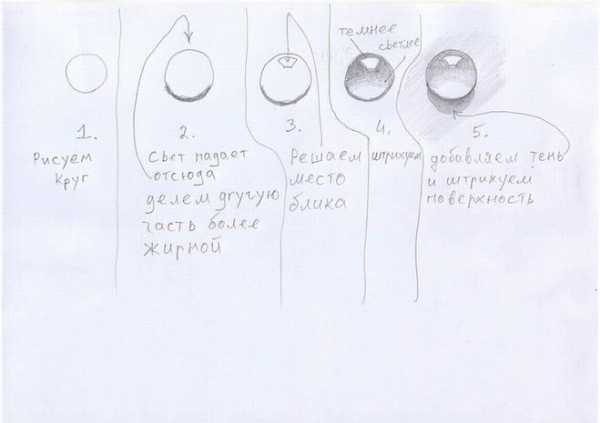 темнее
светлее
1.
Рисуем
круг
2.
Свет падает
отсюда
делем другую
часть более
жирной
3.
Решаем
место
блика
4.
штрихуем
5.
добавляем тень
и штрихуем
поверхность